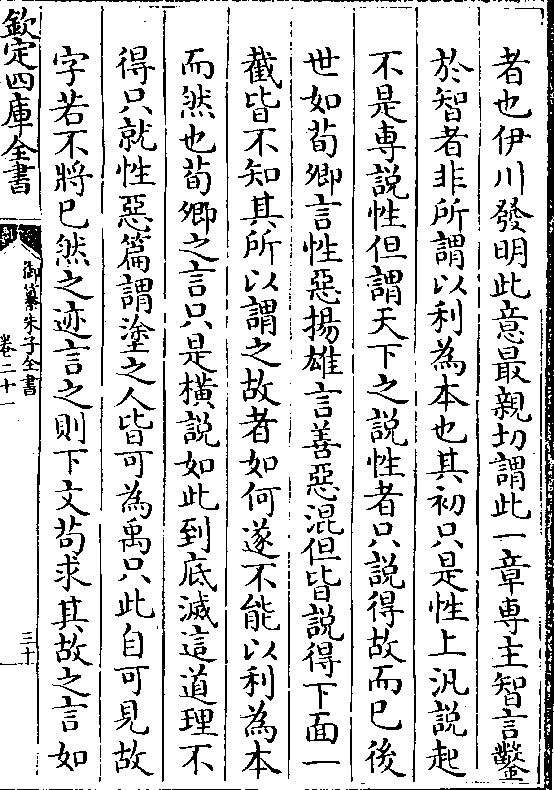 者也伊川發明此意最親切謂此一章専主智言鑿
於智者非所謂以利為本也其初只是性上汎説起
不是専説性但謂天下之説性者只説得故而已後
世如荀卿言性惡揚雄言善惡混但皆説得下面一
截皆不知其所以謂之故者如何遂不能以利為本
而然也荀卿之言只是横説如此到底滅這道理不
得只就性惡篇謂塗之人皆可為禹只此自可見故
字若不將已然之迹言之則下文苟求其故之言如
欽定四庫全書
御纂朱子全書
卷二十一
三十